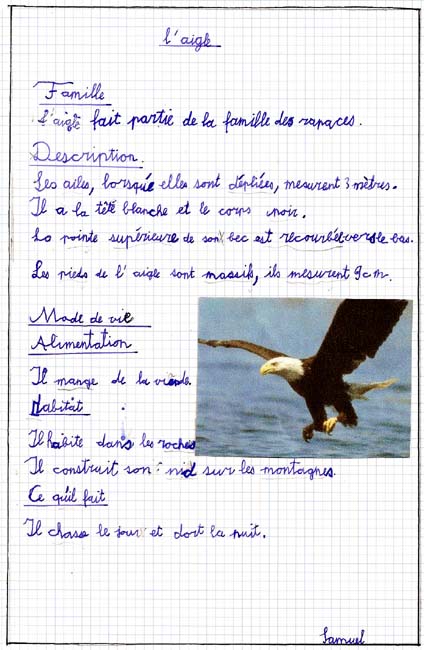 l'aigle
Famille
L'aigle fait partie de la famille des rapaces.
Description.
Ses ailes, lorsqué elles sont dépliées, mesurent 3 mètres.
Il a la tête blanche et le corps noir.
La pointe supérieure de son bec est recourbée vers le bas.
Les pieds de l'aigle sont massifs, ils mesurent 9 cm.
Mode de vie
Alimentation
Il mange de la viande.
Habitat
Il habite dans les roches
Il construit son nid sur les montagnes.
Ce qu'il fait
Il chasse le jour et dort la nuit.
Samuel